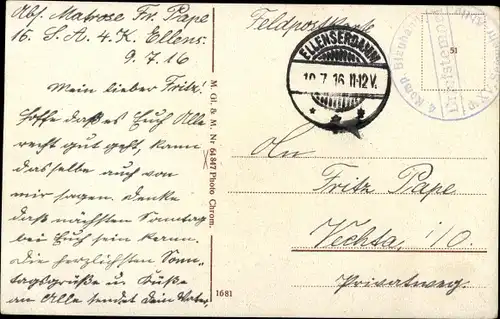 Abs. Matrose Fr. Pape
16. S. A. 4. K. Ellens.
9.7.16
Mein lieber Fritz!
Hoffe daß es Euch Alle
recht gut geht, kann
dasselbe auch von
mir sagen. Denke
daß nächsten Sonntag
bei Euch sein kann.
Die herzlichsten Sonn-
tagsgrüße u. Küße
an Alle sendet Dein Vater.
Feldpostkarte
ELLENSERDAMM
10.7.16.11-12V.
4. Komp.
Dienststempel
51
M. Gl. & M. Nr 64847 Photo Chrom.
1681
An
Fritz Pape
Vechta i/O.
Privatweg.